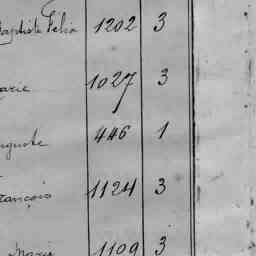 Baptiste Félix 1202 3
Marie 1027 3
Auguste 446 1
François 1124 3
Marie 1109 3